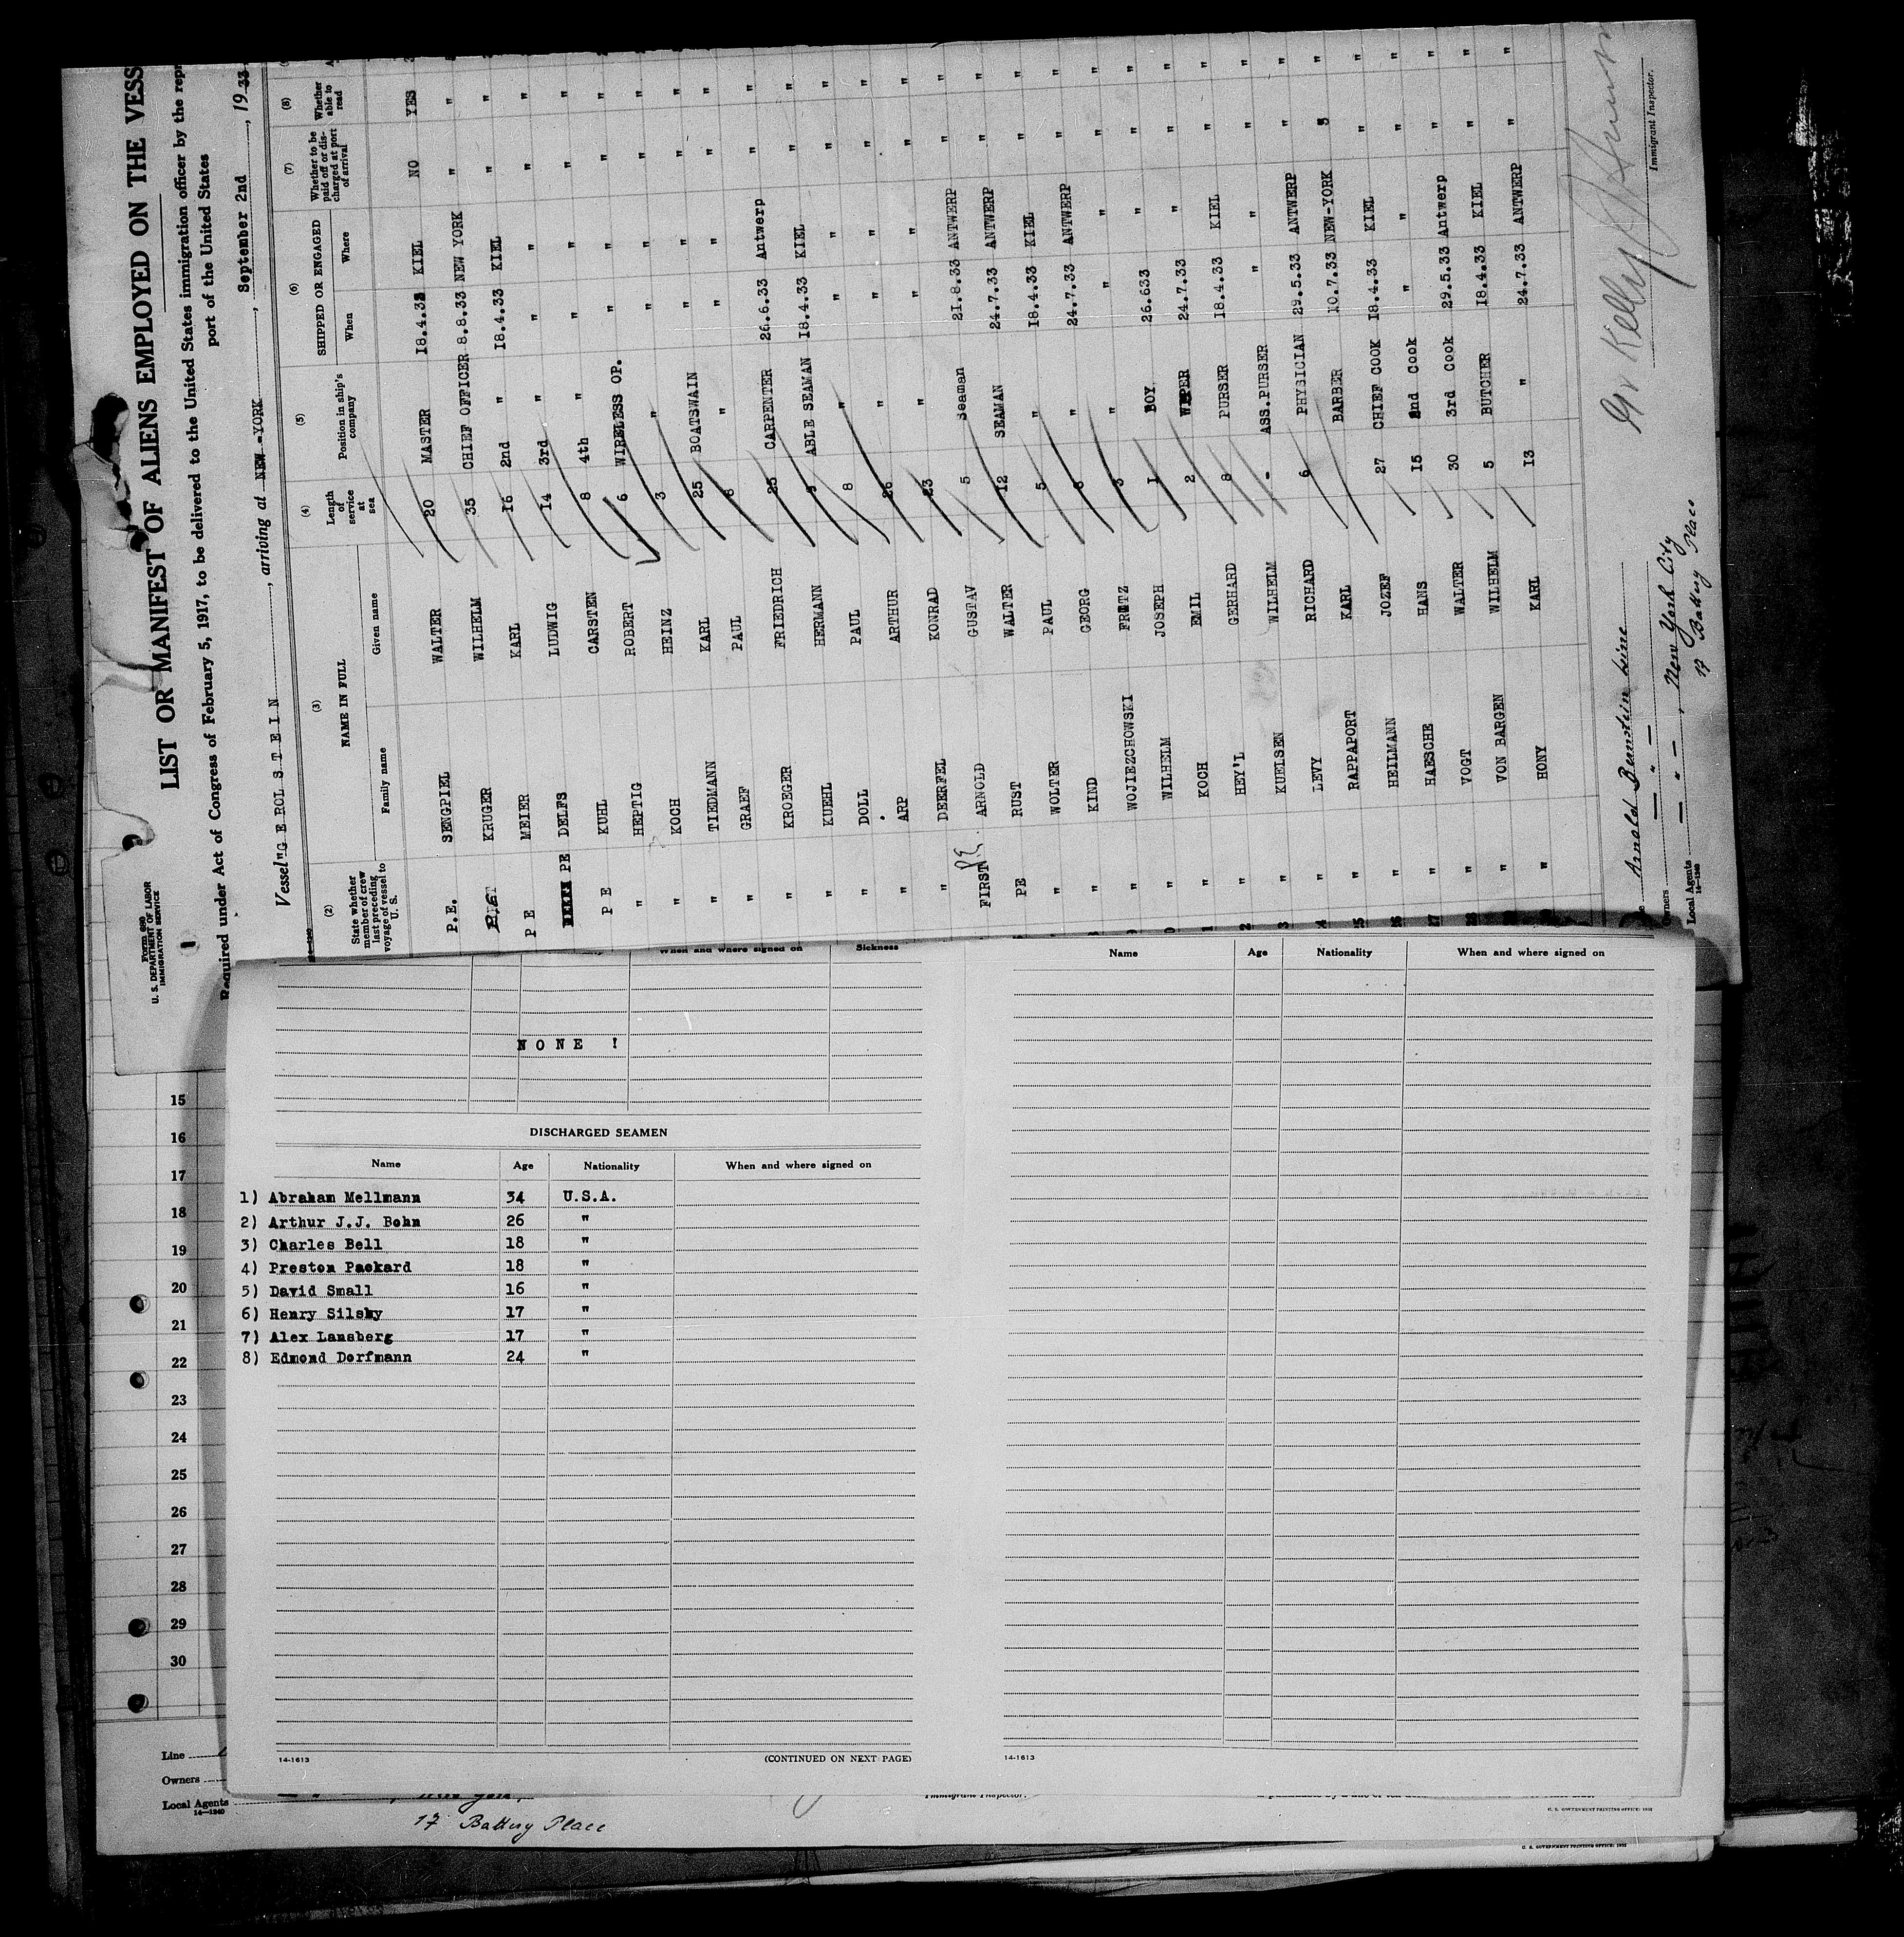 Form 690
U. S. DEPARTMENT OF LABOR
IMMIGRATION SERVICE
LIST OR MANIFEST OF ALIENS EMPLOYED ON THE VESS
Required under Act of Congress of February 5, 1917, to be delivered to the United States immigration officer by the repr
port of the United States
Vessel "G E R O L S T E I N, arriving at NEW-YORK, September 2nd, 1933
(2) (3) (4) (5) (6) (7) (8)
State whether member of crew last preceding voyage of vessel to U. S. NAME IN FULL Length of service at sea Position in ship's company SHIPPED OR ENGAGED Whether to be paid off or discharged at port of arrival Whether able to read
Family name Given name When Where
P.E. SENGPIEL WALTER 20 MASTER 18.4.33 KIEL NO YES
KRUGER WILHELM 35 CHIEF OFFICER 8.8.33 NEW YORK " "
P E MEIER KARL 16 2nd " 18.4.33 KIEL " "
PE DELFS LUDWIG 14 3rd " " " " "
P E KUHL CARSTEN 8 4th " " " " "
" HEPTIG ROBERT 6 WIRELESS OP. " " " "
" KOCH HEINZ 3 " " " " "
" TIEDMANN KARL 25 BOATSWAIN " " " "
" GRAEF PAUL 8 " " " " "
" KROEGER FRIEDRICH 25 CARPENTER 26.6.33 Antwerp " "
" KUEHL HERMANN 9 ABLE SEAMAN 18.4.33 KIEL " "
" DOLL PAUL 8 " " " " "
" ARP ARTHUR 26 " " " " "
" DEERFEL KONRAD 23 " " " " "
FIRST PE ARNOLD GUSTAV 5 Seaman 21.8.33 ANTWERP " "
PE RUST WALTER 12 SEAMAN 24.7.33 ANTWERP " "
" WOLTER PAUL 5 " 18.4.33 KIEL " "
" KIND GEORG 6 " 24.7.33 ANTWERP " "
" WOJIEZCHOWSKI FRITZ 3 " " " " "
" WILHELM JOSEPH 1 BOY 26.633 " " "
" KOCH EMIL 2 WIPER 24.7.33 " " "
" HEY'L GERHARD 8 PURSER 18.4.33 KIEL " "
" KUELSEN WILHELM - ASS.PURSER " " " "
" LEVY RICHARD 6 PHYSICIAN 29.5.33 ANTWERP " "
" RAPPAPORT KARL BARBER 10.7.33 NEW-YORK " "
" HEILMANN JOZEF 27 CHIEF COOK 18.4.33 KIEL " "
" HAESCHE HANS 15 2nd Cook " " " "
" VOGT WALTER 30 3rd Cook 29.5.33 Antwerp " "
" VON BARGEN WILHELM 5 BUTCHER 18.4.33 KIEL " "
" HONY KARL 13 " 24.7.33 ANTWERP " "
Arnold Bernstein Line
Owners — " —
Local Agents — " —, New York City
14—1240
17 Battery Place
Kelly
Immigrant Inspector.
When and where signed on Sickness
N O N E !
DISCHARGED SEAMEN
Name Age Nationality When and where signed on
1) Abraham Mellmann 34 U.S.A.
2) Arthur J.J. Bohn 26 "
3) Charles Bell 18 "
4) Preston Packard 18 "
5) David Small 16 "
6) Henry Silsby 17 "
7) Alex Lansberg 17 "
8) Edmond Dorfmann 24 "
14-1613
(CONTINUED ON NEXT PAGE)
Name Age Nationality When and where signed on
14-1613
15
16
17
18
19
20
21
22
23
24
25
26
27
28
29
30
Line
Owners
Local Agents
14—1240
17 Battery Place
Immigrant Inspector.
U. S. GOVERNMENT PRINTING OFFICE: 1932
U. S. GOVERNMENT PRINTING OFFICE: 1932